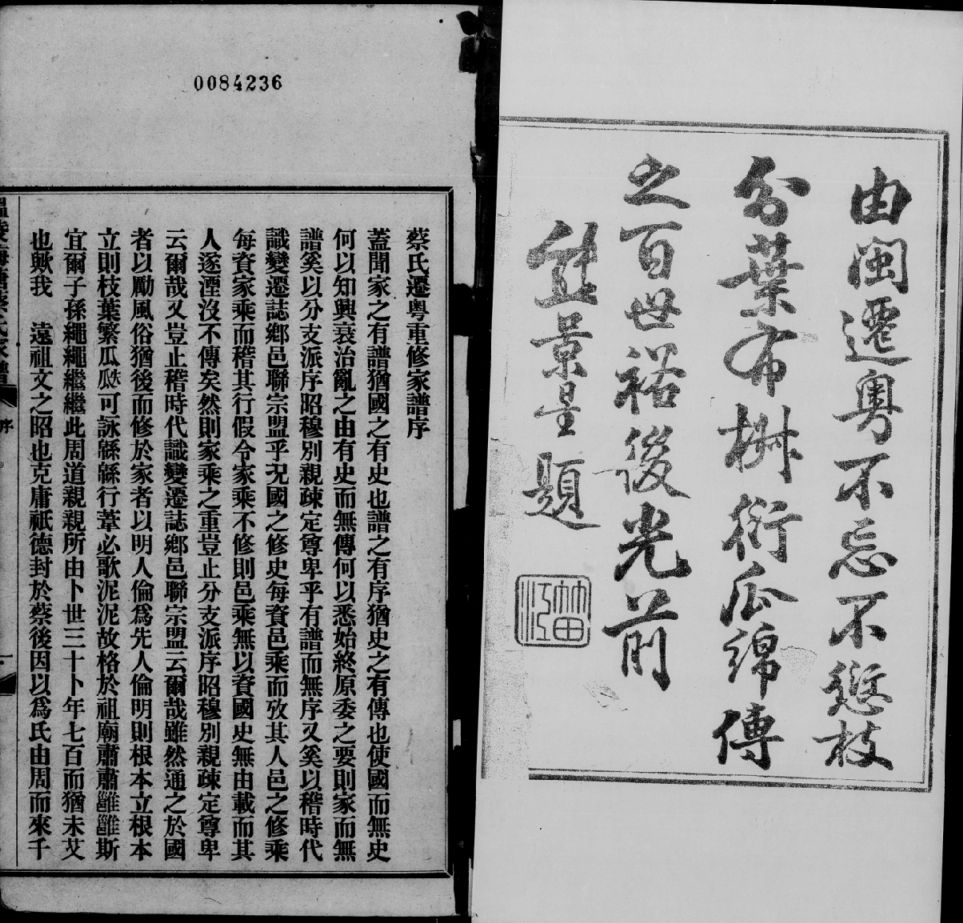 由閩遷粵不忘不愆枝
分葉布椒衍瓜綿傳
之百世裕後光前
熊景星題
0084236
蔡氏遷粵重修家譜序
蓋聞家之有譜猶國之有史也譜之有序猶史之有傳也使國而無史
何以知興衰治亂之由有史而無傳何以悉始終原委之要則家而無
譜奚以分支派序昭穆別親疎定尊卑乎有譜而無序又奚以稽時代
識變遷誌鄉邑聯宗盟乎況國之修史每資邑乘而攷其人邑之修乘
每資家乘而稽其行假令家乘不修則邑乘無以資國史無由載而其
人遂湮沒不傳矣然則家乘之重豈止分支派序昭穆別親疎定尊卑
云爾哉又豈止稽時代識變遷誌鄉邑聯宗盟云爾哉雖然通之於國
者以勵風俗猶後而修於家者以明人倫爲先人倫明則根本立根本
立則枝葉繁瓜瓞可詠緜緜行葦必歌泥泥故格於祖廟肅肅雝雝斯
宜爾子孫繩繩繼繼此周道親親所由卜世三十卜年七百而猶未艾
也歟我　遠祖文之昭也克庸祇德封於蔡後因以爲氏由周而來千
蔡氏家譜
序
一